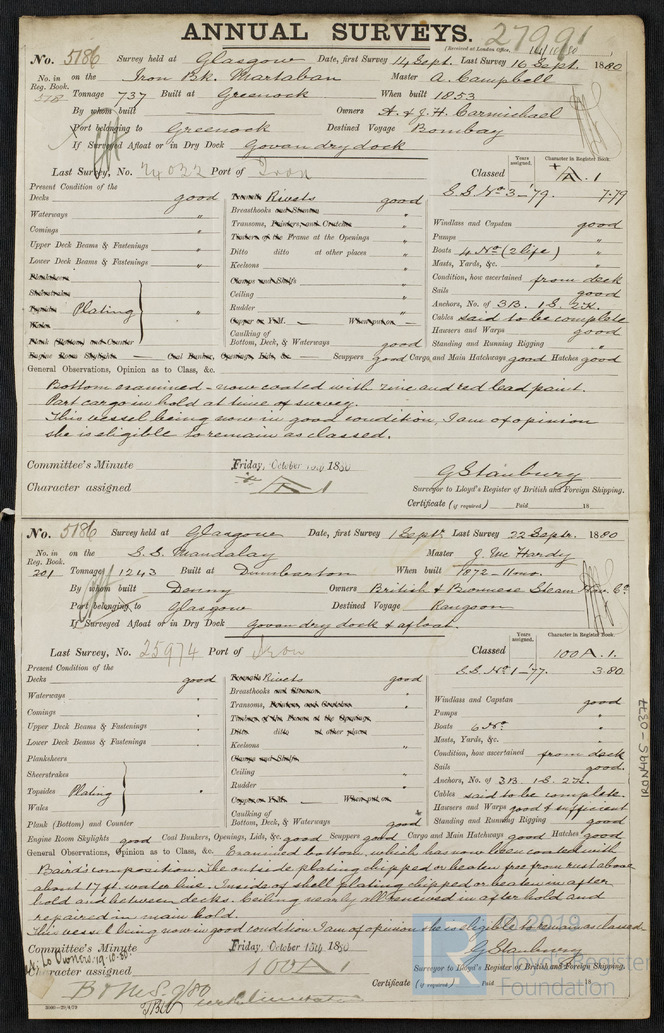 ANNUAL SURVEYS.
27991
(Received at London Office, 14/10/80
No. 5186 Survey held at Glasgow Date, first Survey 14 Sept. Last Survey 16 Sept. 1880
No. in Reg. Book. 578 on the Iron Bk. Martaban Master A. Campbell
Tonnage 737 Built at Greenock When built 1853
By whom built Owners A. & J. H. Carmichael
Port belonging to Greenock Destined Voyage Bombay
If Surveyed Afloat or in Dry Dock Govan dry dock
Last Survey, No. 24022 Port of Iron Classed Years assigned. Character in Register Book.
+ A. 1
S.S. No 3-'79. 7.79
Present Condition of the
Decks good
Waterways "
Comings "
Upper Deck Beams & Fastenings "
Lower Deck Beams & Fastenings "
Planksheers
Sheerstrakes
Topsides Plating "
Wales
Plank (Bottom) and Counter
Engine Room Skylights Coal Bunkers, Openings, Lids, &c. Scuppers good Cargo and Main Hatchways good Hatches good
Treenails Rivets good
Breasthooks and Stemson "
Transoms, Pointers and Crutches "
Timbers of the Frame at the Openings "
Ditto ditto at other places "
Keelsons "
Clamps and Shelfs
Ceiling "
Rudder "
Copper or Y.M. When put on
Caulking of Bottom, Deck, & Waterways good
Windlass and Capstan good
Pumps "
Boats 4 No (2 life) "
Masts, Yards, &c. "
Condition, how ascertained from deck
Sails good
Anchors, No. of 3 B. 1 S. 2 K.
Cables said to be complete
Hawsers and Warps good
Standing and Running Rigging "
General Observations, Opinion as to Class, &c.
Bottom examined - now coated with zinc and red lead paint.
Part cargo in hold at time of survey.
This vessel being now in good condition, I am of opinion
she is eligible to remain as classed.
Committee's Minute Friday, October 15th 1880
Character assigned A 1
G Stanbury
Surveyor to Lloyd's Register of British and Foreign Shipping.
Certificate (if required) Paid 18
No. 5186 Survey held at Glasgow Date, first Survey 1 Sept. Last Survey 22 Septr. 1880
No. in Reg. Book. 201 on the S.S. Mandalay Master J. Mc Hardy
Tonnage 1243 Built at Dumbarton When built 1872-11mo.
By whom built Denny Owners British & Burmese Steam Nav. Co.
Port belonging to Glasgow Destined Voyage Rangoon
If Surveyed Afloat or in Dry Dock Govan dry dock & afloat.
Last Survey, No. 25974 Port of Iron Classed Years assigned. Character in Register Book.
100 A. 1.
S.S. No 1-'77. 3.80
Present Condition of the
Decks good
Waterways "
Comings "
Upper Deck Beams & Fastenings "
Lower Deck Beams & Fastenings "
Planksheers
Sheerstrakes
Topsides Plating "
Wales
Plank (Bottom) and Counter
Treenails Rivets good
Breasthooks and Stemson
Transoms, Pointers and Crutches
Timbers of the Frame at the Openings
Ditto ditto at other places
Keelsons "
Clamps and Shelfs
Ceiling "
Rudder "
Copper or Y.M. When put on
Caulking of Bottom, Deck, & Waterways good
Windlass and Capstan good
Pumps "
Boats 6 No. "
Masts, Yards, &c. "
Condition, how ascertained from deck
Sails good.
Anchors, No. of 3 B. 1 S. 2 K.
Cables said to be complete.
Hawsers and Warps good & sufficient
Standing and Running Rigging good
Engine Room Skylights good Coal Bunkers, Openings, Lids, &c. good Scuppers good Cargo and Main Hatchways good Hatches good
General Observations, Opinion as to Class, &c. Examined bottom, which has now been coated with
Baird's composition. The outside plating chipped or beaten free from rust above
about 17 ft. water line. Inside of shell plating chipped or beaten in after
hold and between decks. Ceiling nearly all renewed in after hold and
repaired in main hold.
This vessel being now in good condition I am of opinion she is eligible to remain as classed
Committee's Minute Friday, October 15th 1880
to Owners. 19.10.80.
Character assigned 100 A 1
G Stanbury
Surveyor to Lloyd's Register of British and Foreign Shipping.
Certificate (if required) Paid 18
B & M S. 9/80
IRON495-0377
© 2019
LR
Lloyd's Register
Foundation